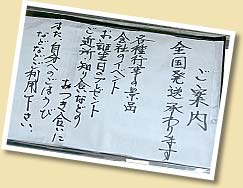 ご案内
全国発送承わります
各種行事の景品
会社のイベント
お誕生日のプレゼント
ご近所、知り合などの
おつき合いに
また、自分へのごほうび
などなどご利用下さい。